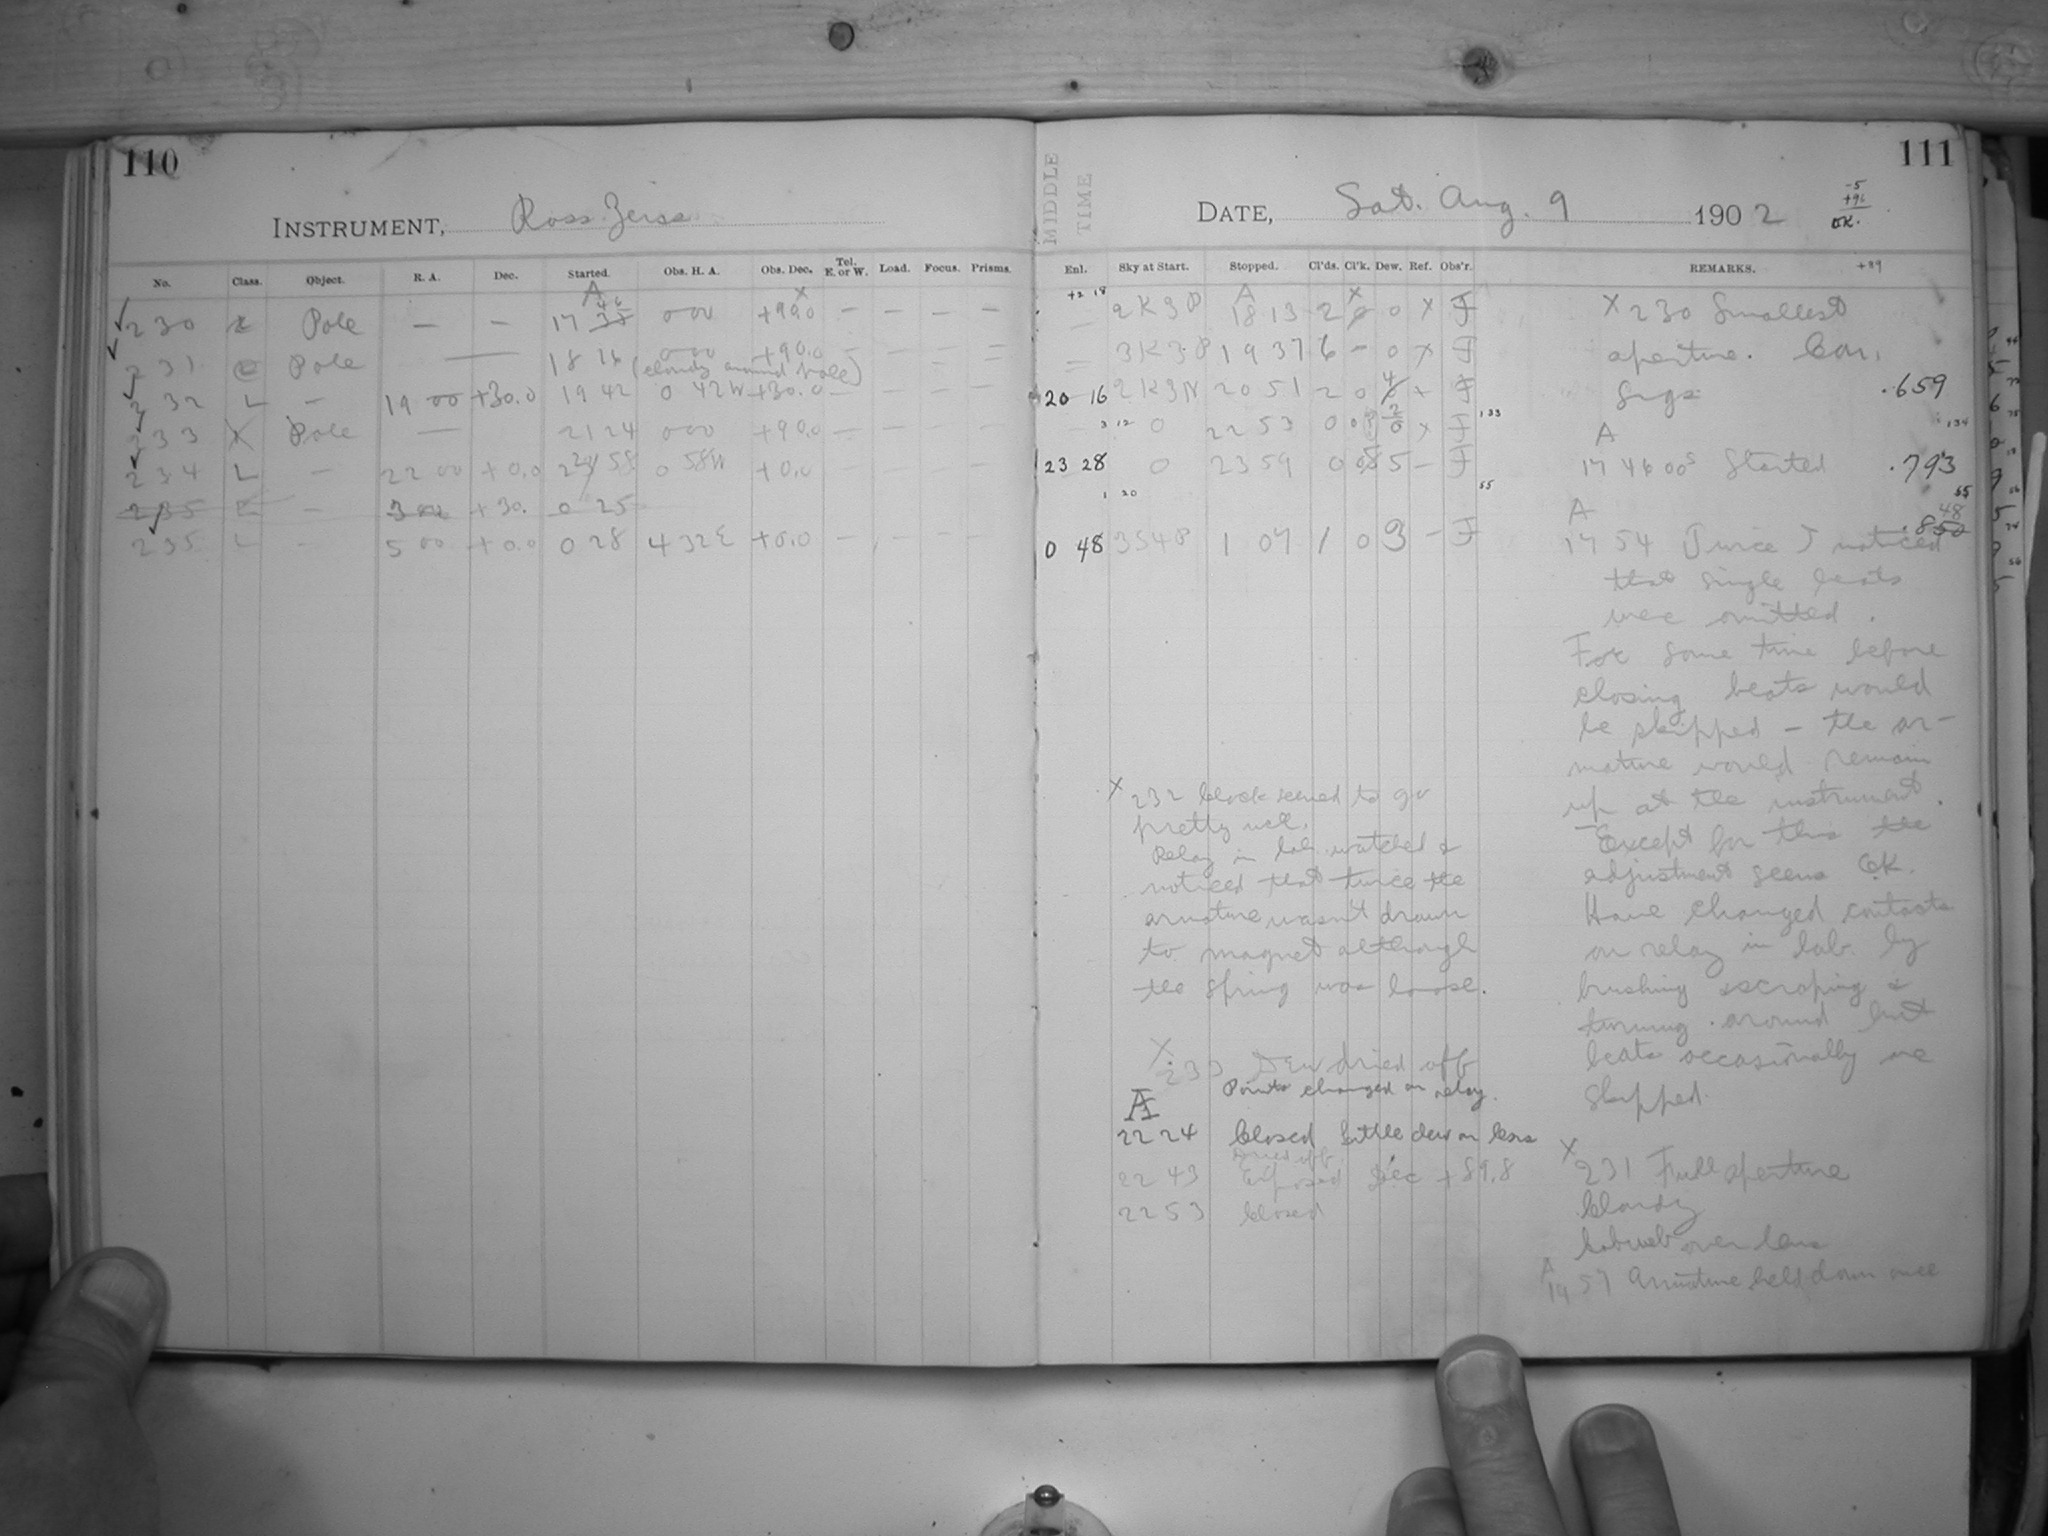 110
INSTRUMENT, Ross Zeiss
No. Class. Object. R. A. Dec. Started. Obs. H. A. Obs. Dec. Tel. E. or W. Load. Focus. Prisms.
A X
46
230 Pole — — 17 38 0 00 +90.0 — — — —
231 Pole — 18 26 0 00 +90.0 — — — —
(clouds around Pole)
232 L — 19 00 +30.0 19 42 0 42W +30.0 — — — —
233 Pole — 21 24 0 00 +90.0 — — — —
234 L — 22 00 +0.0 22 58 0 58W +0.0 — — — —
235 L — 3 00 +30. 0 25
235 L — 5 00 +0.0 0 28 4 32E +0.0 — — — —
111
MIDDLE TIME
DATE, Sat. Aug. 9 1902
-5
+96
OK.
Enl. Sky at Start. Stopped. Cl'ds. Cl'k. Dew. Ref. Obs'r. REMARKS. +89
+2 18 A X
2K3P 18 13 2 0 0 X F
3K3P 19 37 6 — 0 X F
20 16 2K3N 20 51 2 0 4 + F
3 12 0 22 53 0 0 2 0 X F 133
23 28 0 23 59 0 0 5 — F
1 20 55
0 48 3S48P 1 07 1 0 3 — F
X 230 Smallest
aperture. Con.
Sigs. .659
A 134
17 46 00s Started .793
55
A 48
.850
17 54 Twice I noticed
that single beats
were omitted.
For some time before
closing beats would
be skipped — the ar-
mature would remain
up at the instrument.
Except for this the
adjustment seems OK.
Have changed contacts
on relay in lab. by
brushing & scraping &
turning around but
beats occasionally are
skipped.
X 231 Full aperture
Cloudy
Cobweb over lens
A
19 57 Armature held down once
X 232 Clock seemed to go
pretty well.
Relay in lab. watched &
noticed that twice the
armature wasn't drawn
to magnet although
the spring was loose.
X 233 Dew dried off
Points changed on relay.
A
22 24 Closed little dew on lens
Dried off
22 43 Exposed Dec +89.8
22 53 Closed